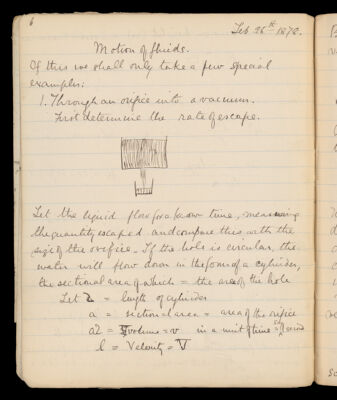 6
Feb 26th 1870.
Motion of fluids.
Of this we shall only take a few special
examples:
1. Through an orifice into a vacuum.
First determine the rate of escape.
Let the liquid flow for a known time, measuring
the quantity escaped and compare this with the
size of the orifice. If the hole is circular, the
water will flow down in the form of a cylinder,
the sectional area of which = the area of the hole
Let l = length of cylinder
a = sectional area = area of the orifice
al = volume = v in a unit of time = second
l = Velocity = V